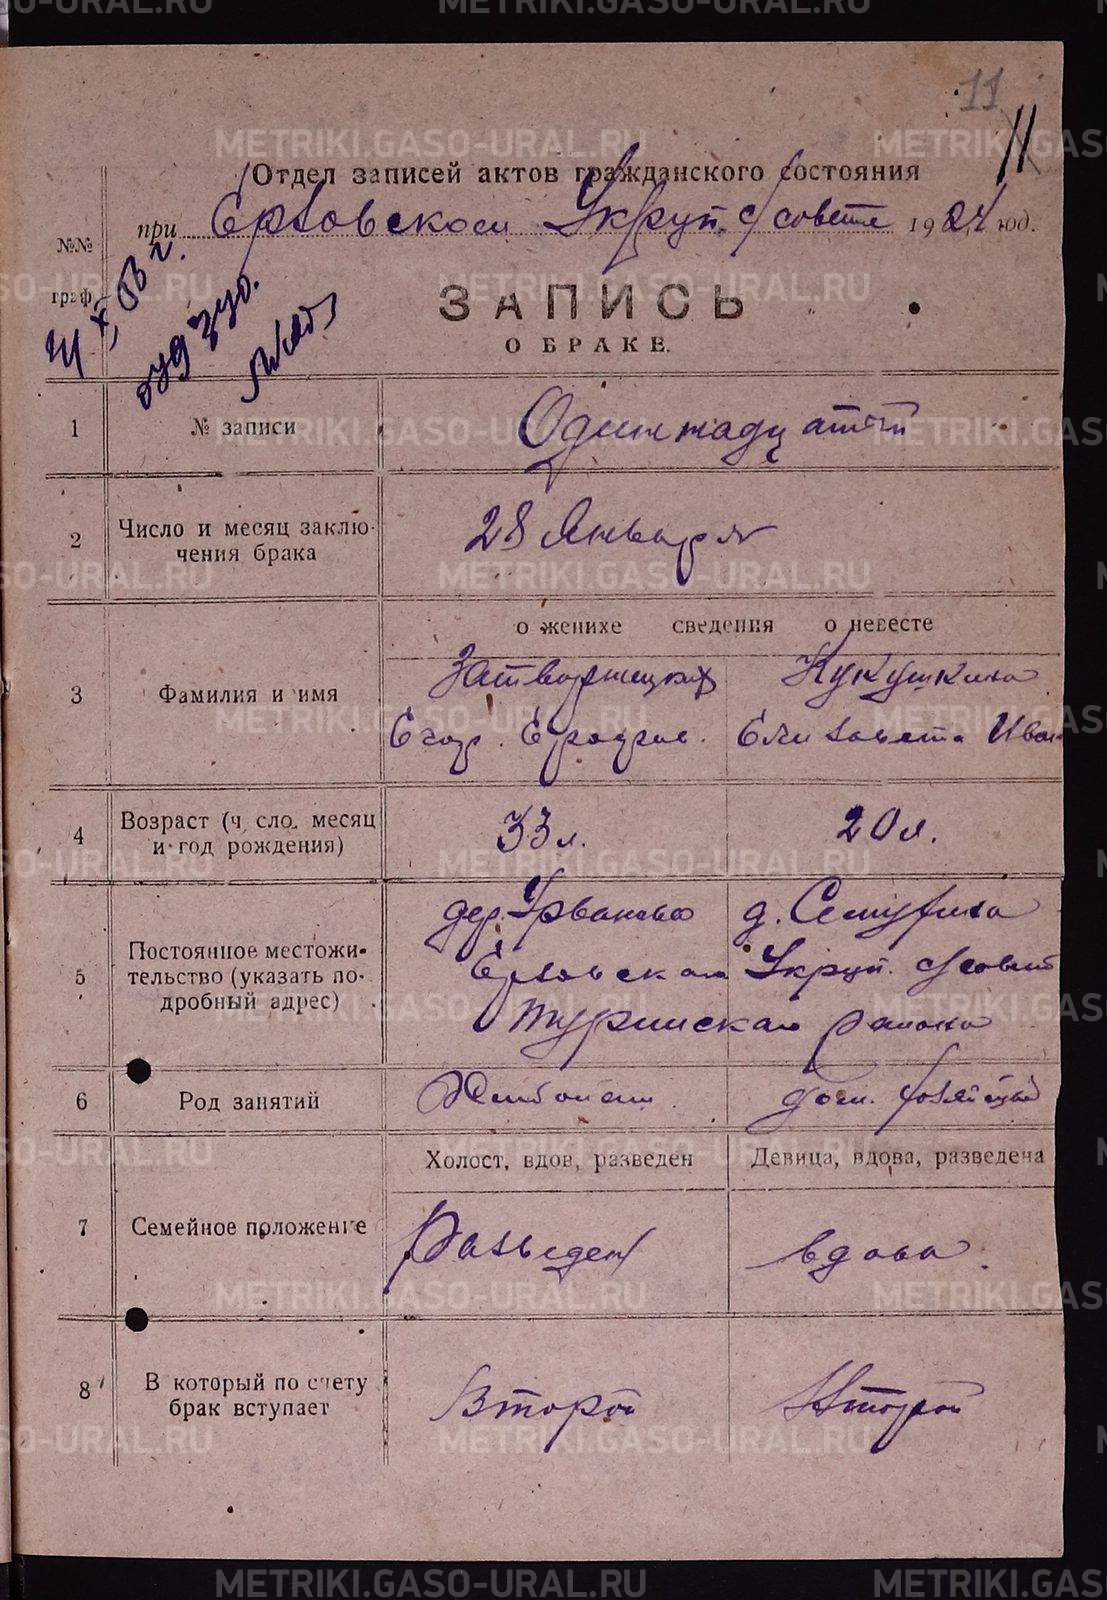 11
11
Отдел записей актов гражданского состояния
при Ерзовском Укруп. с/совете 1924 год.
№№ граф.
ЗАПИСЬ
О БРАКЕ.
1 № записи Одиннадцатый
2 Число и месяц заклю-
чения брака 28 Января
о женихе сведения о невесте
3 Фамилия и имя
Затворницких Кукушкина
Егор. Елизавета Иван
4 Возраст (ч сло, месяц
и год рождения) 33 л. 20 л.
5 Постоянное местожи-
тельство (указать по-
дробный адрес)
дер. Урваново д.
Ерзовскаго Укруп. с/совет
Туринскаго района
6 Род занятий дом. хозяйств
Холост, вдов, разведен Девица, вдова, разведена
7 Семейное положение Разведен вдова
8 В который по счету
брак вступает Второй Второй
METRIKI.GASO-URAL.RU